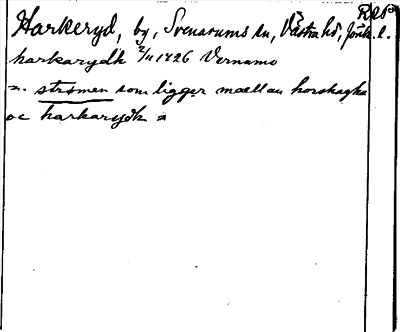 Rep
Harkeryd, by, Svenarums sn, Västra hd, Jönk. l.
harkarydh 2/11 1426 Vernamo
=. strömen som ligger mællan horshagha
oc harkarydh =